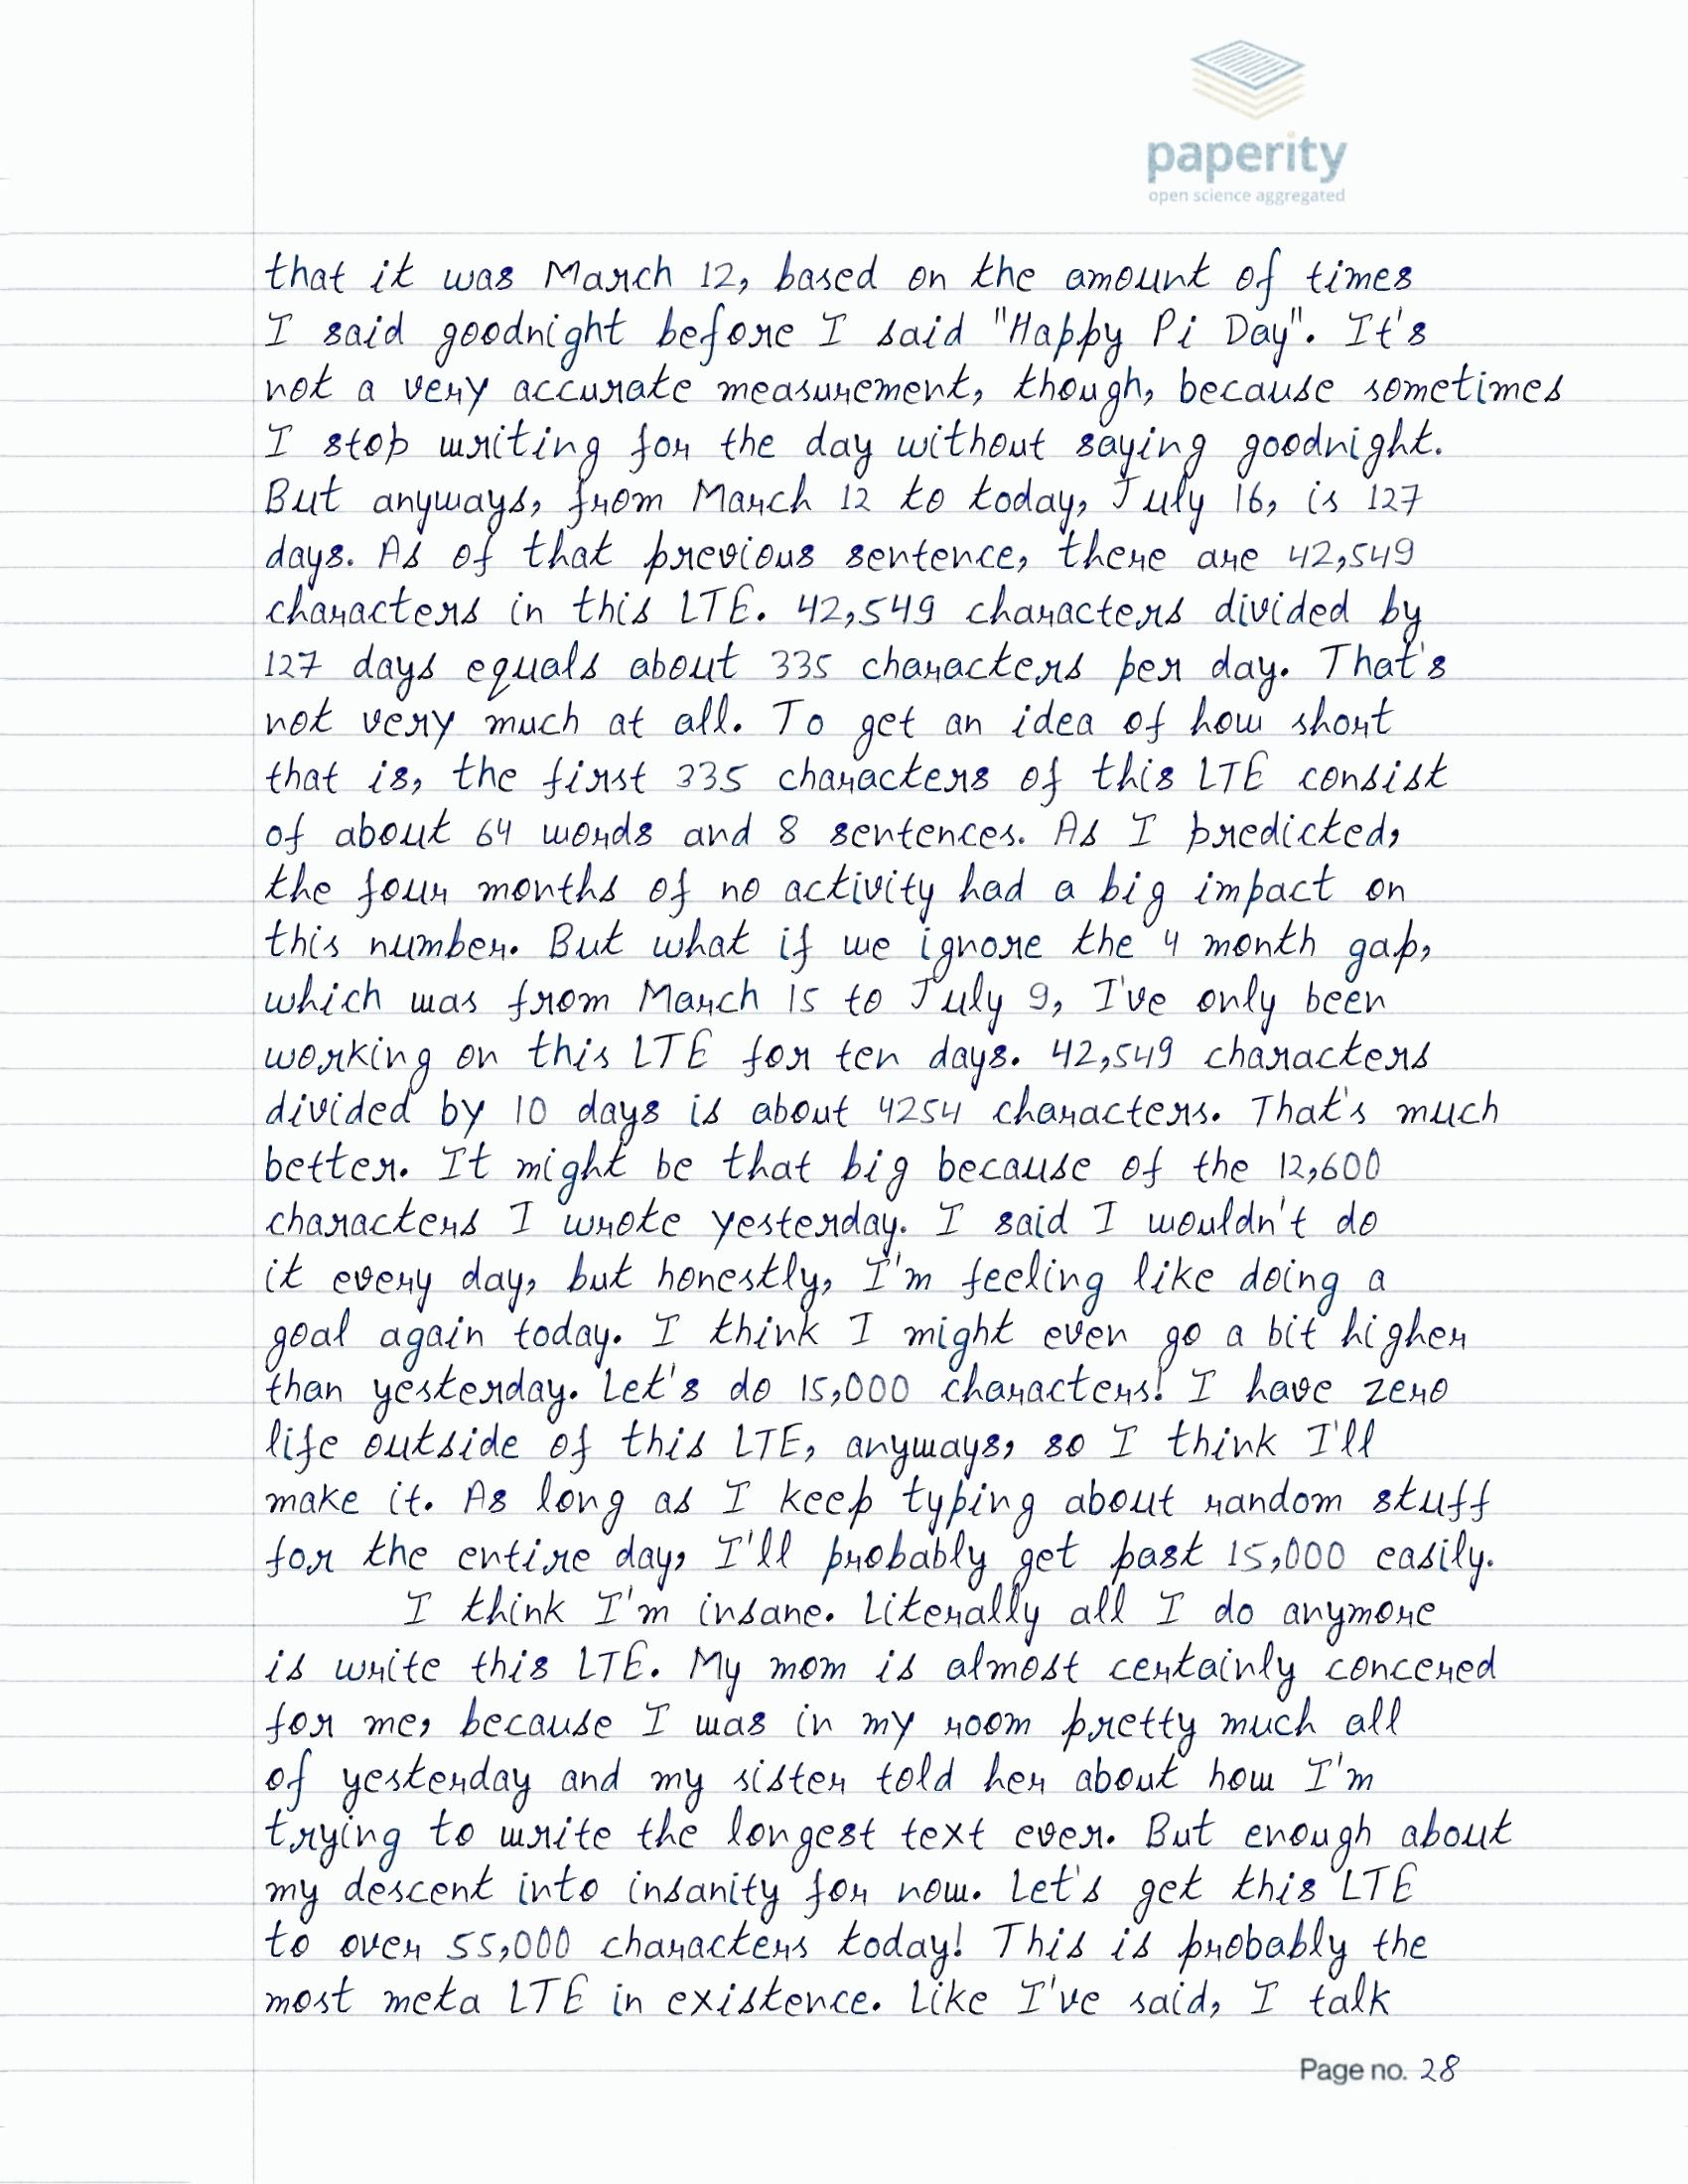 paperity
open science aggregated
that it was March 12, based on the amount of times
I said goodnight before I said "Happy Pi Day". It's
not a very accurate measurement, though, because sometimes
I stop writing for the day without saying goodnight.
But anyways, from March 12 to today, July 16, is 127
days. As of that previous sentence, there are 42,549
characters in this LTE. 42,549 characters divided by
127 days equals about 335 characters per day. That's
not very much at all. To get an idea of how short
that is, the first 335 characters of this LTE consist
of about 64 words and 8 sentences. As I predicted,
the four months of no activity had a big impact on
this number. But what if we ignore the 4 month gap,
which was from March 15 to July 9, I've only been
working on this LTE for ten days. 42,549 characters
divided by 10 days is about 4254 characters. That's much
better. It might be that big because of the 12,600
characters I wrote yesterday. I said I wouldn't do
it every day, but honestly, I'm feeling like doing a
goal again today. I think I might even go a bit higher
than yesterday. Let's do 15,000 characters! I have zero
life outside of this LTE, anyways, so I think I'll
make it. As long as I keep typing about random stuff
for the entire day, I'll probably get past 15,000 easily.
I think I'm insane. Literally all I do anymore
is write this LTE. My mom is almost certainly concered
for me, because I was in my room pretty much all
of yesterday and my sister told her about how I'm
trying to write the longest text ever. But enough about
my descent into insanity for now. Let's get this LTE
to over 55,000 characters today! This is probably the
most meta LTE in existence. Like I've said, I talk
Page no. 28